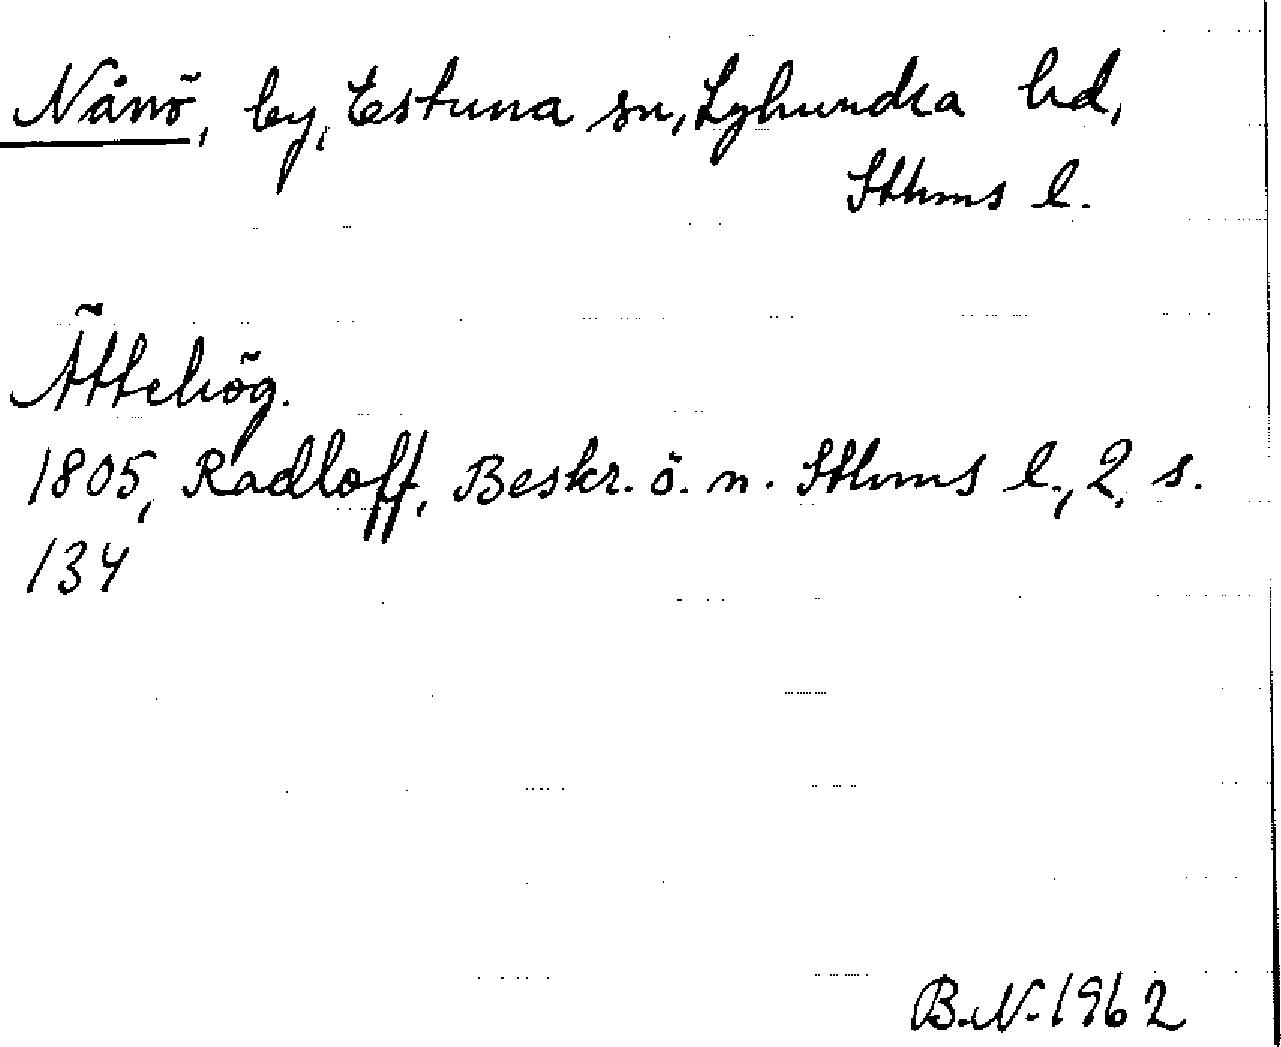 Nånö, by, Estuna sn, Lyhundra hd,
Sthms l.
Ättehög.
1805, Radloff, Beskr. ö. n. Sthms l., 2, s.
134
B.N. 1962